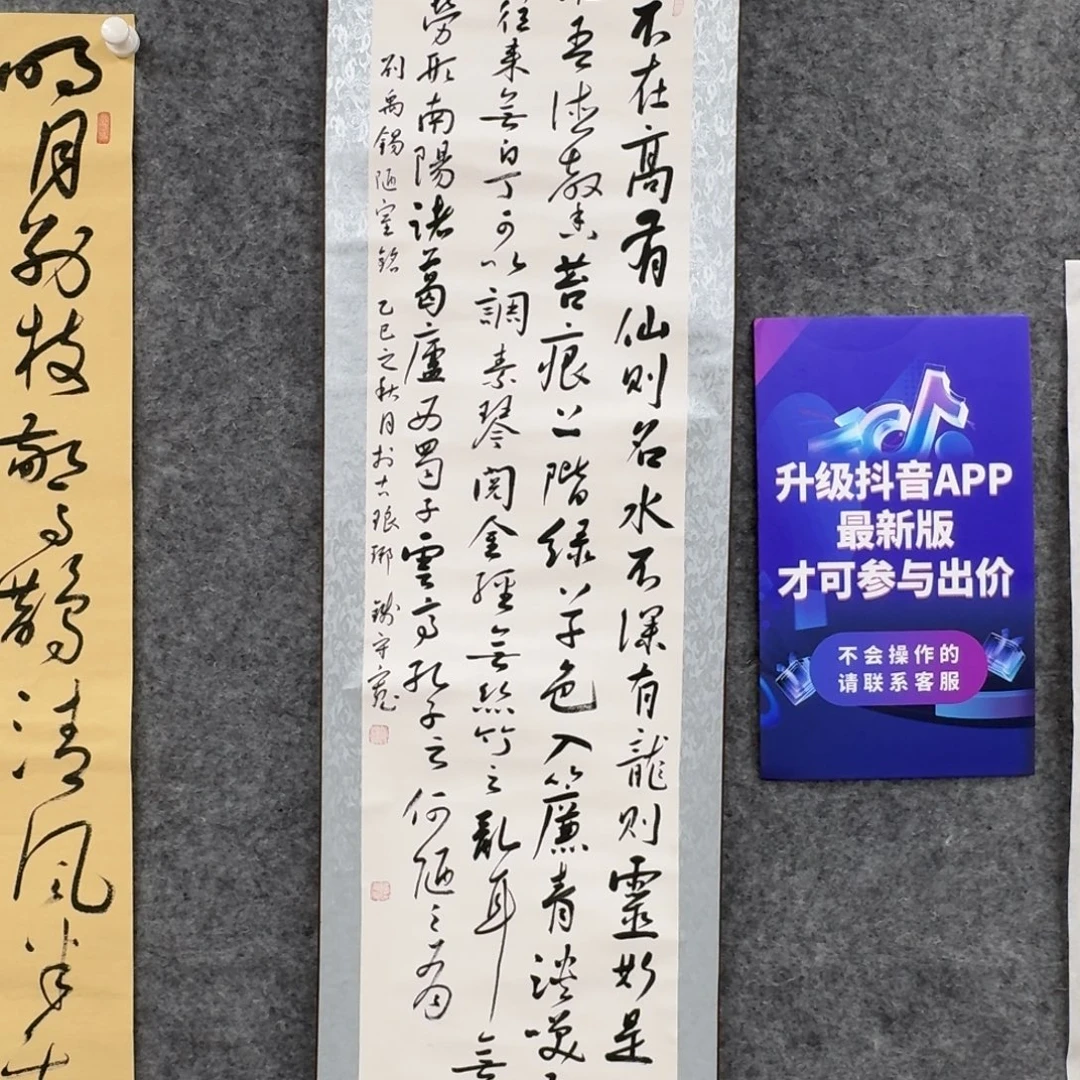 不在高有仙则名水不深有龍则靈斯是
吾德馨苔痕上階緑草色入簾青談笑
往来無白丁可以調素琴閱金經無絲竹之亂耳無
勞形南陽諸葛廬西蜀子雲亭孔子云何陋之有
刘禹锡陋室铭 乙巳之秋月於古琅琊
明月别枝驚鵲清風半
升级抖音APP
最新版
才可参与出价
不会操作的
请联系客服